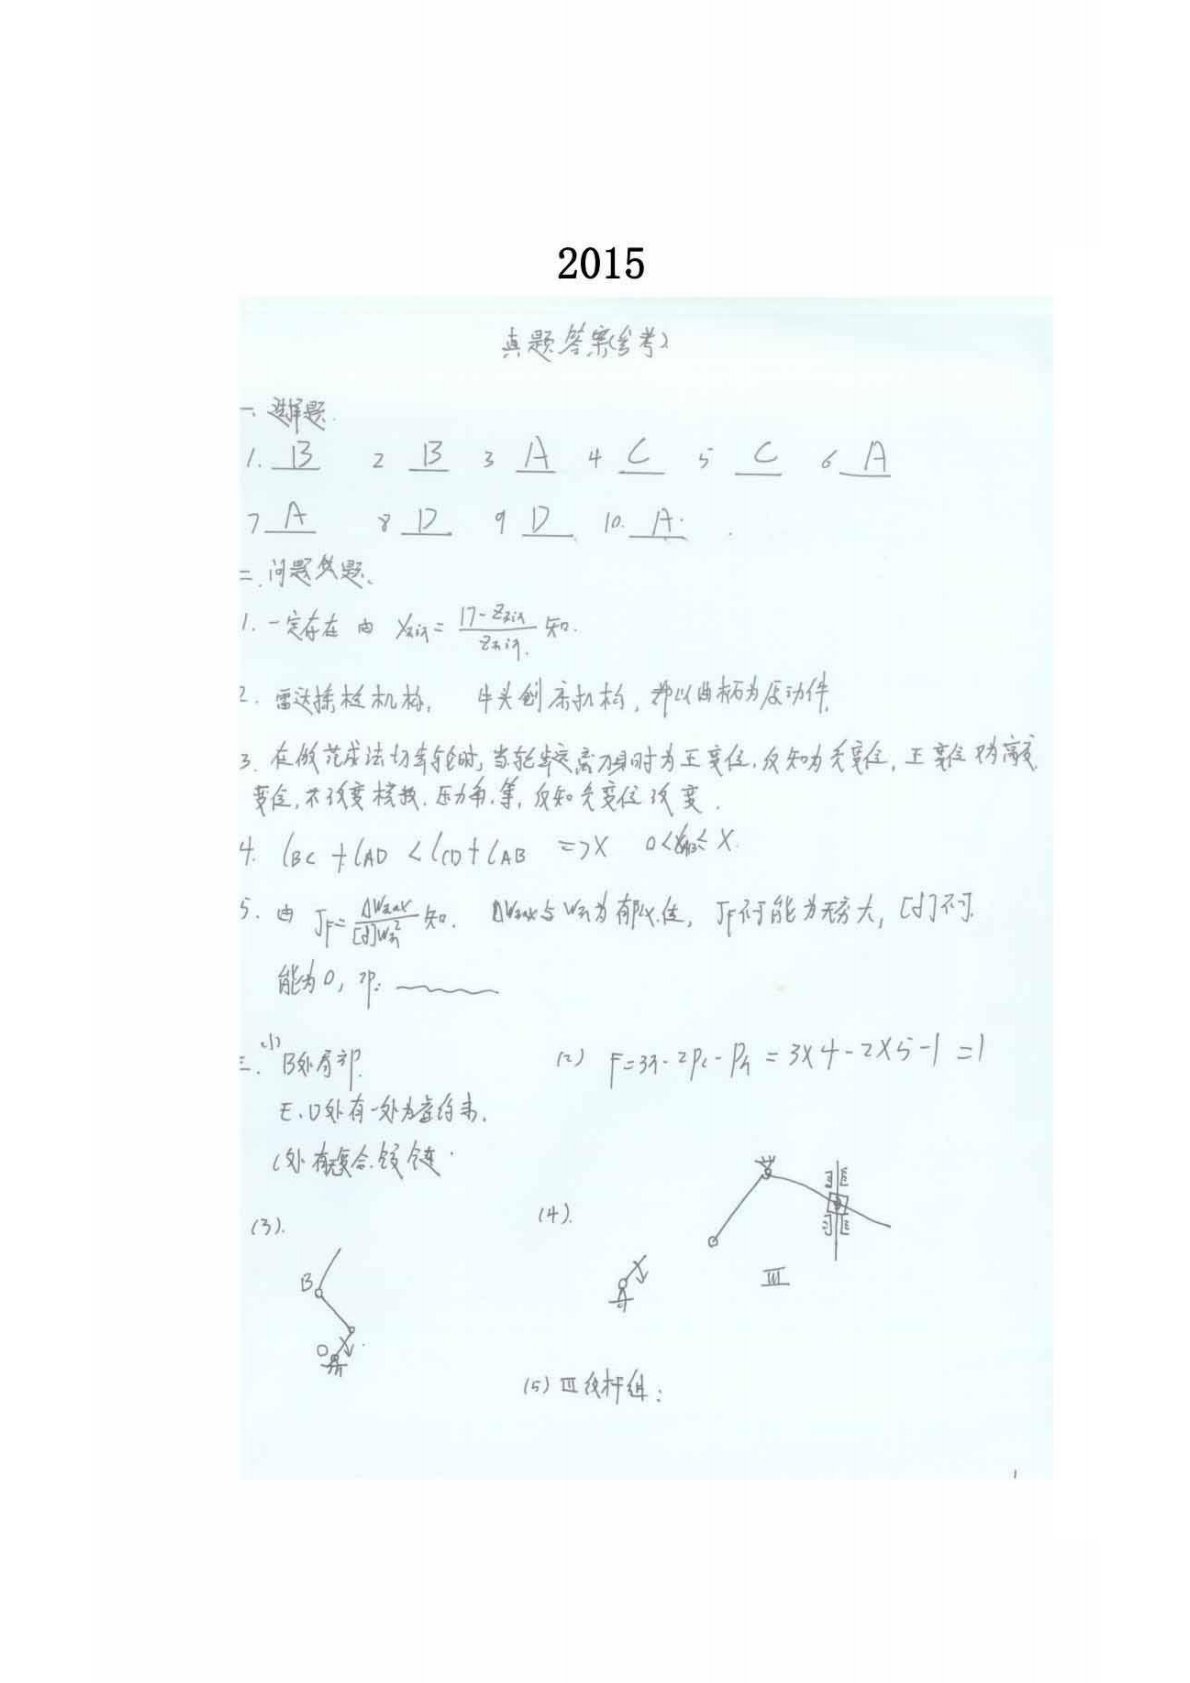 2015
真题答案(参考)
一、选择题.
1. B 2 B 3 A 4 C 5 C 6 A
7 A 8 D 9 D 10. A.
二、问题答题、
1. 一定存在 由 Xmin = (17-Zmin)/Zmin. 知.
2. 机构, 牛头刨床机构, 都以曲柄为原动件.
3. 在做范成法切齿轮时, 当 远离 时为正变位, 反知为负变位, 正变位
变位, 不改变模数. 压力角. 等, 反知负变位改变.
4. lBC + lAD < lCD + lAB => X 0< ≤ X.
5. 由 JF = ΔWmax/[δ]Wm² 知. ΔWmax与Wm为有限值, JF不可能为无穷大, [δ]不可
能为0, 即:
三. (1) B处局部. (2) F=3n-2PL-Ph = 3×4-2×5-1 =1
E、D处有一处为虚约束.
C处有复合铰链.
(3). (4).
B
O
III
(5) III级杆组:
1